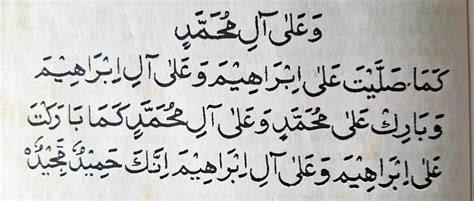 وَعَلٰى آلِ مُحَمَّدٍ
كَمَا صَلَّيْتَ عَلٰى اِبْرَاهِيْمَ وَعَلٰى آلِ اِبْرَاهِيْمَ
وَبَارِكْ عَلٰى مُحَمَّدٍ وَعَلٰى آلِ مُحَمَّدٍ كَمَا بَارَكْتَ
عَلٰى اِبْرَاهِيْمَ وَعَلٰى آلِ اِبْرَاهِيْمَ اِنَّكَ حَمِيْدٌ مَّجِيْدٌ